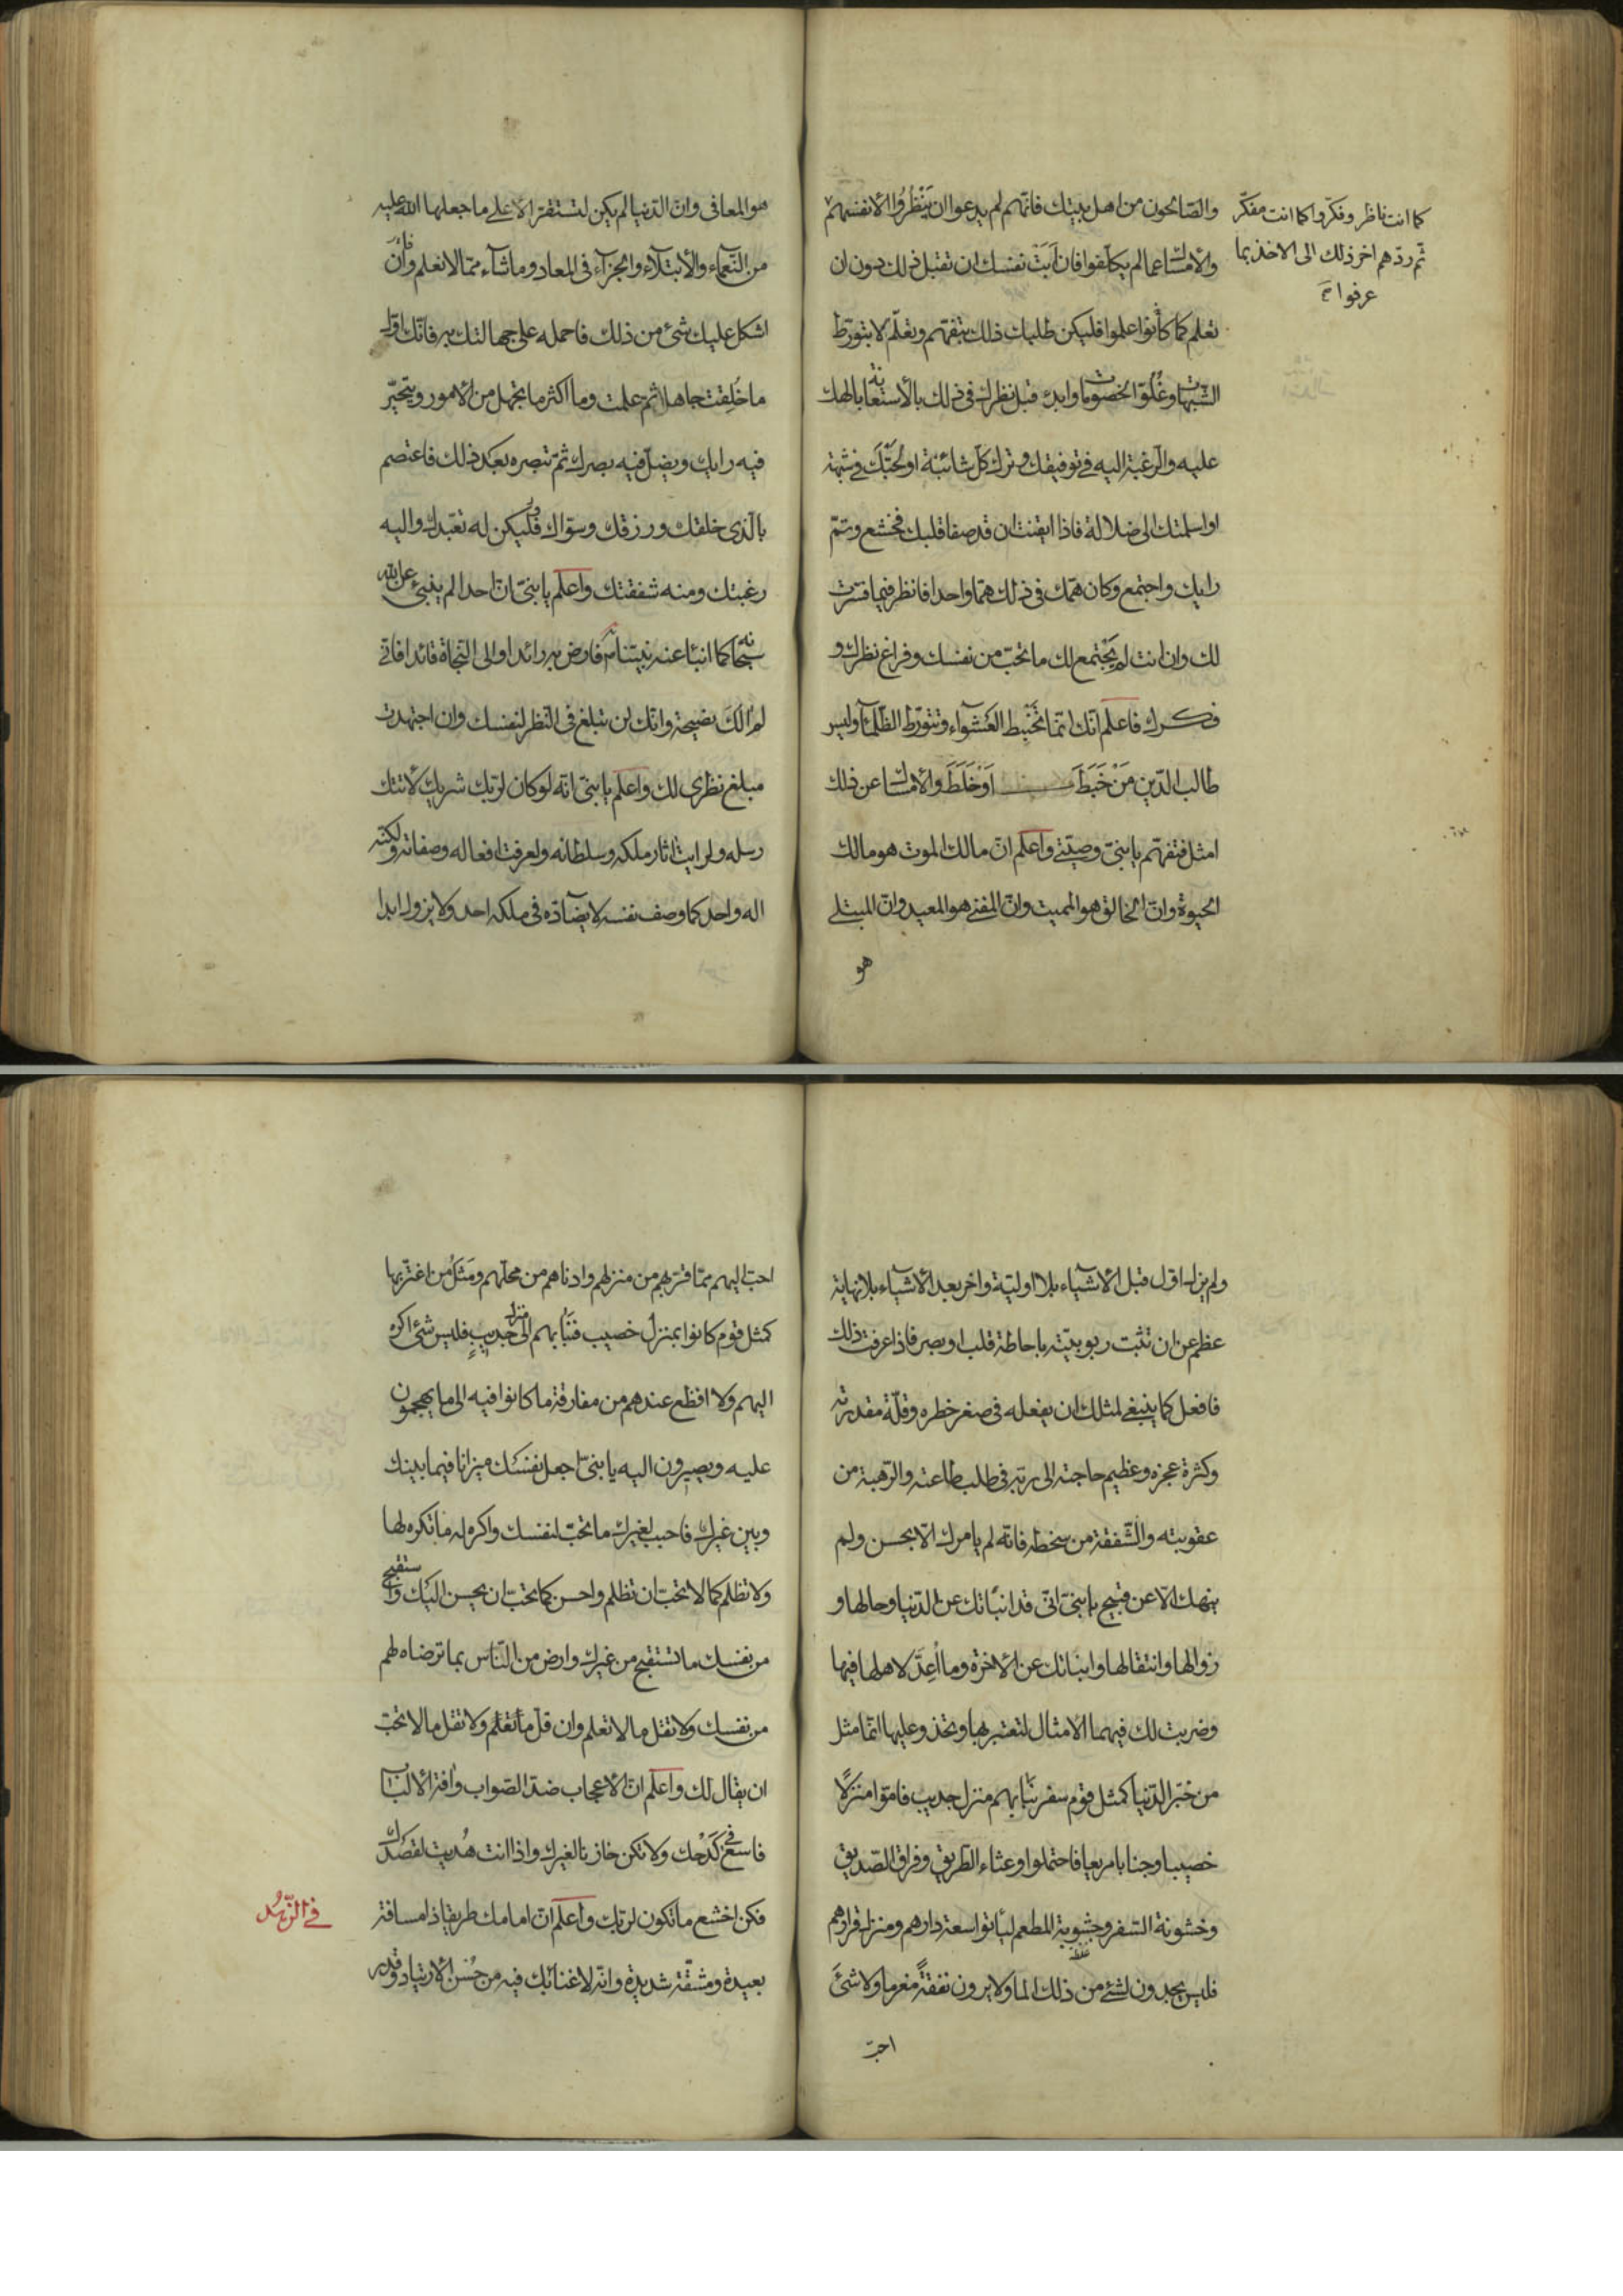 والصّالحون من اهل بيتك فانّهم لم يدعوا ان يَنْظُرُوا لانفسهم
كما انت ناظر وفكّروا كما انت مفكّر
ثم ردّهم اخر ذلك الى الاخذ بما
عرفوا
والأمساك عما لم يكلّفوا فان اَبَتْ نفسك ان تقبل ذلك دون ان
تعلم كما كانوا علموا فليكن طلبك ذلك بتفهّم وتعلّم لا بتورّط
الشبهات وغُلُوّ الخصومات وابدء قبل نظرك فى ذلك بالأستعانة بالهك
عليه والرّغبة اليه فى توفيقك وترك كلّ شائبة اولجَتْكَ فى شبهة
او اسلمتك الى ضلالة فاذا ايقنت ان قد صفا قلبك فخشع وتمّ
رايك واجتمع وكان همّك فى ذلك همّا واحدا فانظر فيما فسّرت
لك وان انت لم يَجْتمع لك ما تحبّ من نفسك وفراغ نظرك و
فكرك فاعلم انّك انّما تَخْبِط العَشْوآء وتتورّط الظّلمآء وليس
طالب الدّين مَنْ خَبَطَ اَوْ خَلَطَ والأمساك عن ذلك
امثل فتفهّم يا بنىّ وصيّتى واعلم انّ مالك الموت هو مالك
الحيوة وانّ الخالق هو المميت وانّ المفنى هو المعيد وانّ المبتلى
هو
هو المعافى وانّ الدّنيا لم يكن لتستقرّ الّا على ما جعلها الله عليه
من النّعمآء والأبتلآء والجزآء فى المعاد وما شآء ممّا لا نعلم فأن
اشكل عليك شئ من ذلك فاحمله على جهالتك به فانّك اوّل
ما خُلِقت جاهلا ثم علمت وما اكثر ما تجهل من الامور ويتحيّر
فيه رايك ويضلّ فيه بصرك ثمّ تبصره بعد ذلك فاعتصم
بالّذى خلقك ورزقك وسوّاك فليكن له تعبّدك واليه
رغبتك ومنه شفقتك واعلم يا بنىّ انّ احدا لم ينبئ عن الله
سبحانه كما انبئا عنه نبيّنا فارض به رائدا والى النّجاة قائدا فانّى
لم الكَ نصيحة وانّك لن تبلغ فى النّظر لنفسك وان اجتهدت
مبلغ نظرى لك واعلم يا بنىّ انّه لو كان لربّك شريك لاتتك
رسله ولرايت اثار ملكه وسلطانه ولعرفت افعاله وصفاته ولكنّه
اله واحد كما وصف نفسه لا يضآدّه فى ملكه احد ولا يزول ابدا
ولم يزل اوّل قبل الأشيآء بلا اوليّة واخر بعد الأشيآء بلا نهاية
عظم عن ان تثبت ربوبيّته باحاطة قلب او بصر فاذا عرفت ذلك
فافعل كما ينبغى لمثلك ان يفعله فى صغر خطره وقلّة مقدرته
وكثرة عجزه وعظيم حاجته الى ربّه فى طلب طاعته والرّهبة من
عقوبته والشّفقة من سخطه فانّه لم يامرك الّا بحسن ولم
ينهك الّا عن قبيح يا بنىّ انّى قد انبأتك عن الدّنيا وحالها و
زوالها وانتقالها وانباتك عن الاخرة وما اُعِدَّ لاهلها فيها
وضربت لك فيهما الامثال لتعتبر بها وتحذو عليها انّما مثل
من خبّر الدّنيا كمثل قوم سفر نَبَا بهم منزل جديب فامّوا منزلًا
خصيبا وجنابا مريعا فاحتملوا وعثاء الطّريق وفراق الصّديق
وخشونة السّفر وجشوبة المطعم ليأتوا سعة دارهم ومنزل قرارهم
فليس يجدون لشئ من ذلك الما ولا يرون نفقةً مغرما ولا شئَ
احبّ
احبّ اليهم ممّا قرّبهم من منزلهم وادناهم من محلّهم ومَثَلُ من اغترّ بها
كمثل قوم كانوا بمنزل خصيب فنَبَا بهم الى منزل جديبٍ فليس شئ اكره
اليهم ولا افظع عندهم من مفارقة ما كانوا فيه الى ما يهجمون
عليه ويصيرون اليه يا بنىّ اجعل نفسَك ميزانا فيما بينك
وبين غيرك فاحبب لغيرك ما تحبّ لنفسك واكره له ما تكره لها
ولا تظلم كما لا تحبّ ان تظلم واحسن كما تحبّ ان يحسن اليك واستقبح
من نفسك ما تستقبح من غيرك وارض من النّاس بما ترضاه لهم
من نفسك ولا تقل ما لا تعلم وان قلّ ما تعلم ولا تقل ما لا تحبّ
ان يقال لك واعلم انّ الاعجاب ضدّ الصّواب وافة الألباب
فاسعَ فى كَدْحك ولا تكن خازنا لغيرك واذا انت هُديت لقصدك
فكن اخشع ما تكون لربّك واعلم انّ امامك طريقا ذا مسافة
فى الزّهد
بعيدة ومشقّة شديدة وانّه لا غنا بك فيه من حُسْن الارتياد وقدر